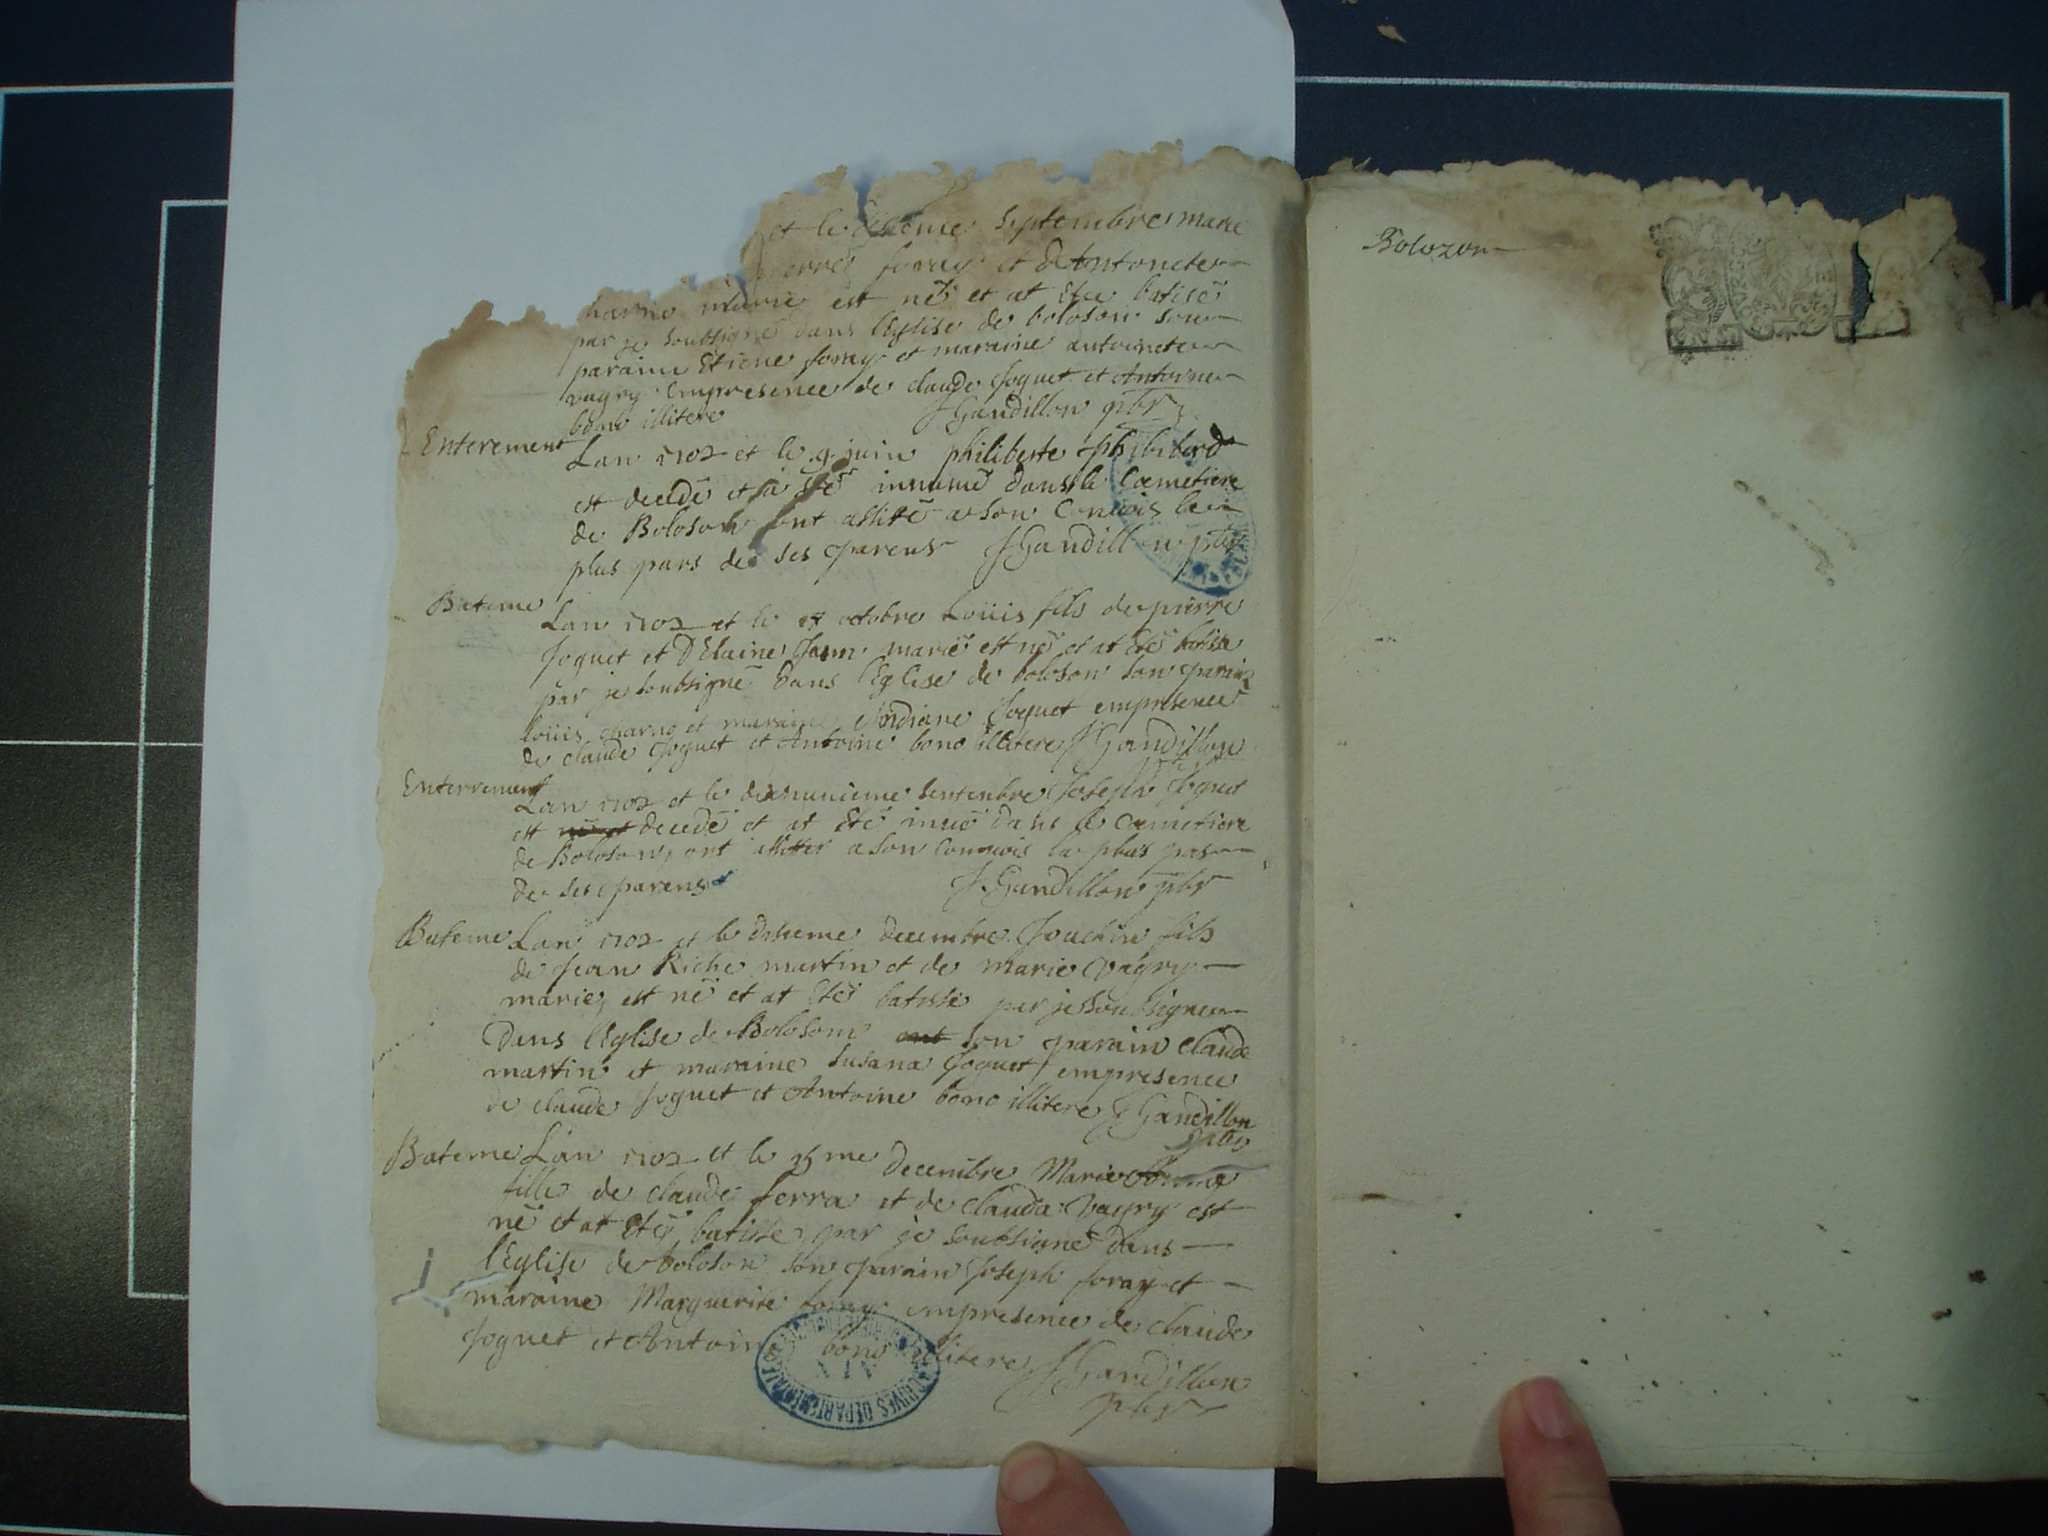 et le septembre marie
pierre foray et de Antonete
charno marie est né et at été batisé
par je soubsigné dans l'Eglise de boloson son
parain Etiene foray et maraine antoinete
vagry empresence de claude Joguet et Antoine
bono illitere J Gandillon pbr
Enterement Lan 1702 et le 9 juin philiberte philiberd
est decedé et a été innumé dans le Cœmetiere
de Boloson ont assité a son Convois le
plus pars de ses parens J Gandillon pbr
Bateme Lan 1702 et le octobre Loüis fils de pierre
Joguet et D'Elaine Jean marié est né et at été batise
par je soubsigné dans l'Eglise de boloson son parain
loüis charno et maraine Andiane Joguet empresence
de claude Joguet et Antoine bono illitere J Gandillon
Enterrement Lan 1702 et le dixnunieme sentenbre Joseph Joguet
est decedé et at été inué dans le Cœmetiere
de Boloson, ont assister a son Convois la plus pas
de ses parens J Gandillon pbr
Bateme Lan 1702 et le disieme decembre Jouachin fils
de Jean Riche martin et de marie Vagry
marie, est né et at été batisse par je soubsigne
Dans l'Eglise de Boloson son parain claude
martin et maraine susana Joguet empresence
de claude Joguet et Antoine bono illitere J Gandillon
pbr
Bateme Lan 1702 et le 25 me decembre Marie
fille de claude ferra et de clauda Vagry est
né et at été batisse par je soubsigné dans
l'Eglise de boloson son parain Joseph foray et
maraine Marguerite foray empresence de claude
Joguet et Antoine bono illitere J Gandillon
pbr
ARCHIVES DEPARTEMENTALES
AIN
Bolozon